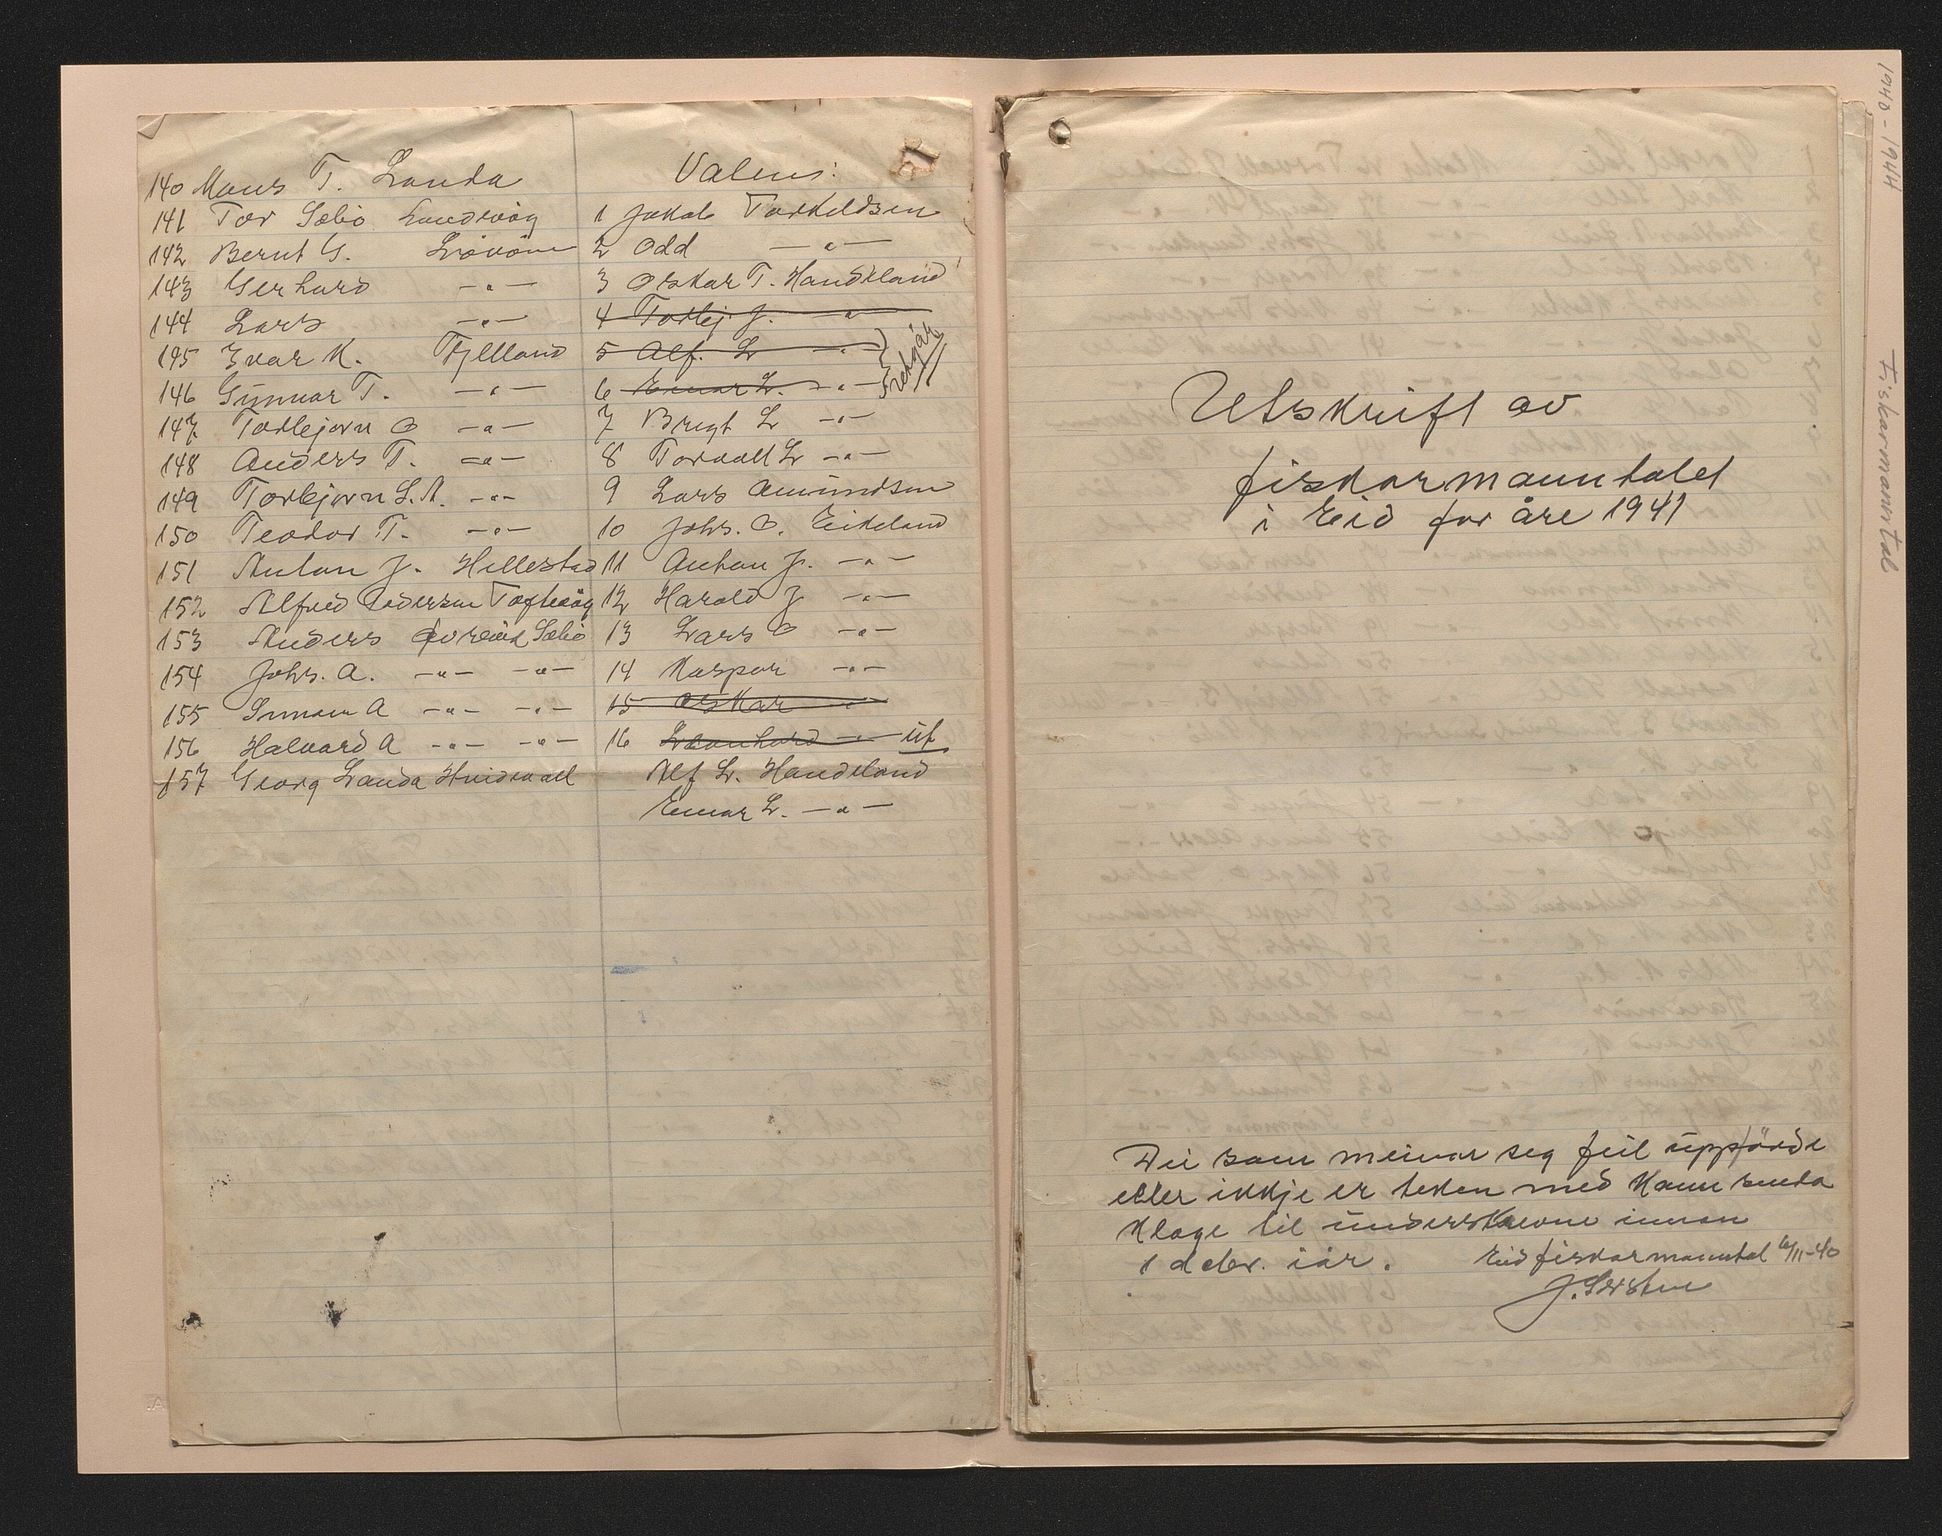 140 Mons T. Landa
141 Tor Sæbö Landevåg
142 Bernt G.
143 Gerhard —"—
144 Lars —"—
145 Ivar K. Fjelland
146 Gunnar T. —"—
147 Torbjørn O —"—
148 Anders T. —"—
149 Torbjørn L. A. —"—
150 Teodor T. —"—
151 Anton J. Hillestad
152 Alfred Pedersen Toftevåg
153 Anders Sæbö
154 Johs. A. —"— —"—
155 A —"— —"—
156 Halvard A —"— —"—
157 Georg Landa Hvidevoll
Valen:
1 Jakob Torkeldsen
2 Odd —"—
3 Oskar T. Handeland
4 Torbj. J. —"—
5 Alf. L —"—
6 Einar L. —"—
7 Brigt L —"—
8 Torvall L —"—
9 Lars Amundsen
10 Johs. O. Eikeland
11 Anton J. —"—
12 Harald J —"—
13 Lars O —"—
14 Kaspar —"—
15 Oskar —"—
16 Leonhard —"— ut
Alf L. Handeland
Einar L. —"—
Utskrift av
fiskarmanntalet
i Eid for åre 1941
Dei som meinar seg feil uppförde
eller ikkje er teken med kann senda
klage til underskrevne innan
1 debr. iår.
Eid fiskarmanntal 6/11-40
1940-1944 Fiskarmanntal